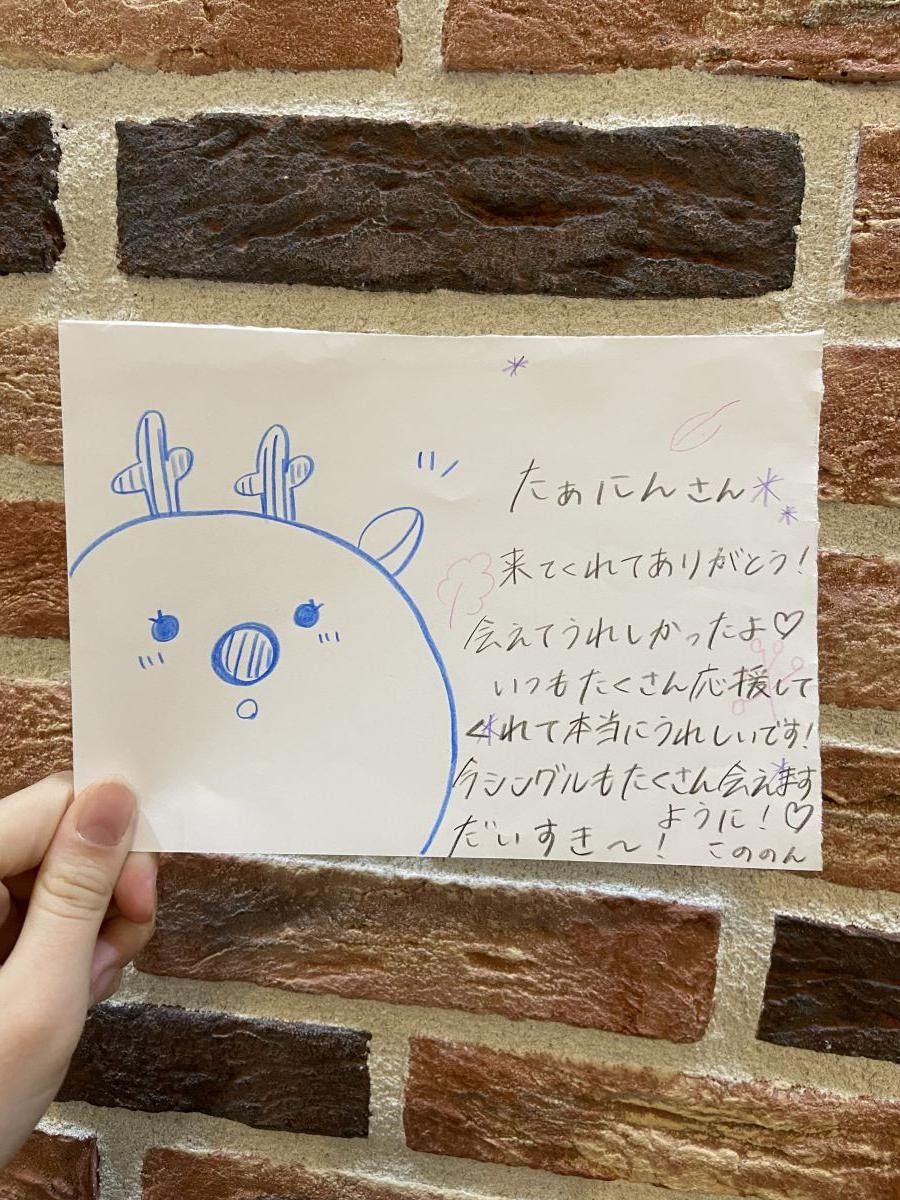 たぁにんさん
来てくれてありがとう!
会えてうれしかったよ♡
いつもたくさん応援して
くれて本当にうれしいです!
今シングルもたくさん会えます
ように!♡
だいすき〜!
こののん